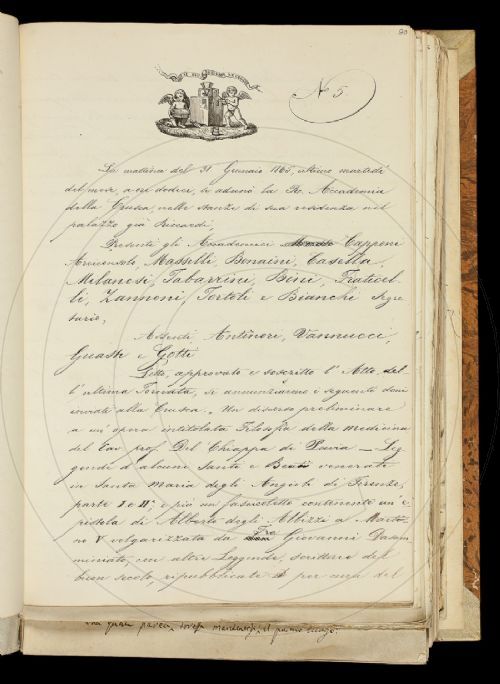 20
N 5.
La mattina del 31 Gennaio 1865, ultimo martedì
del mese, a ore dodici, si adunò la R. Accademia
della Crusca nelle stanze di sua residenza nel
palazzo già Riccardi.
Presenti gli Accademici Capponi
Arciconsolo, Masselli, Bonaini, Casella,
Milanesi, Tabarrini, Bini, Fraticel-
li, Zannoni, Tortoli e Bianchi Segre
tario,
Assenti Antinori, Vannucci,
Guasti e Gotti
Letto, approvato e soscritto l'Atto del
l'ultima Tornata, si annunziarono i seguenti doni
inviati alla Crusca. Un discorso preliminare
a un' opera intitolata Filosofia della Medicina
del Cav prof. Del Chiappa di Pavia — Leg
gende d'alcuni Santi e Beati venerati
in Santa Maria degli Angioli di Firenze,
parte I e II; e più un fascioletto contenente un' e
pistola di Alberto degli Albizzi a Marti-
no V volgarizzata da Fra Giovanni Dasam
miniato, con altre Leggende, scritture del
buon secolo, ripubblicate per cura del